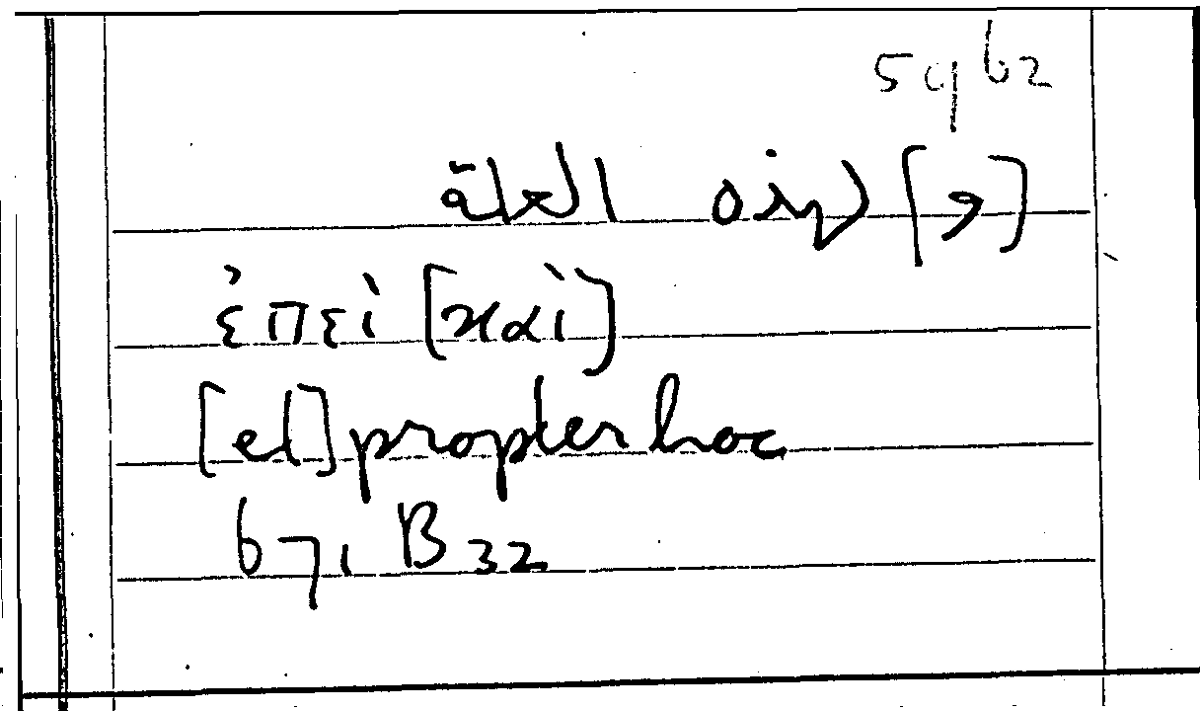 59b2
[و] لهذه العلة
ἐπεὶ [καὶ]
[et] propter hoc
671 B 32